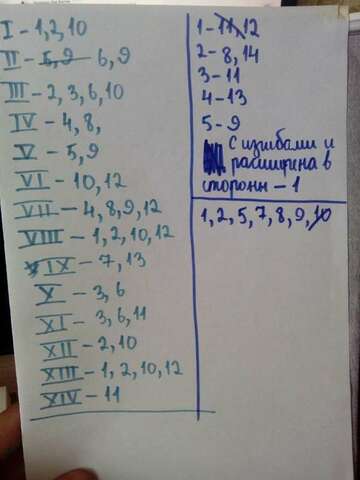 I - 1,2,10
II - 5,9 6,9
III - 2,3,6,10
IV - 4,8,
V - 5,9
VI - 10,12
VII - 4,8,9,12
VIII - 1,2,10,12
IX - 7,13
X - 3,6
XI - 3,6,11
XII - 2,10
XIII - 1,2,10,12
XIV - 11
1 - 11,12
2 - 8,14
3 - 11
4 - 13
5 - 9
С изгибами и
расширина в
стороны - 1
1,2,5,7,8,9,10